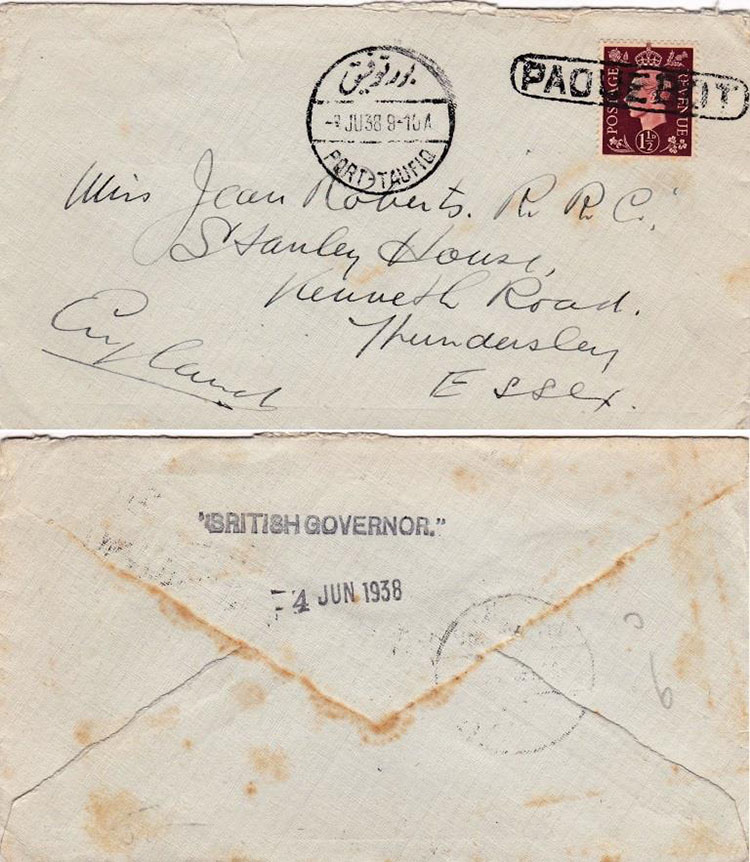 بورتوفيق
JU38 9-10A
PORT-TAUFIQ
PAQUEBOT
POSTAGE REVENUE
1½D
Miss Jean Roberts. R. R. C.,
Stanley House,
Kenneth Road.
Thundersley
Essex.
England
"BRITISH GOVERNOR."
-4 JUN 1938